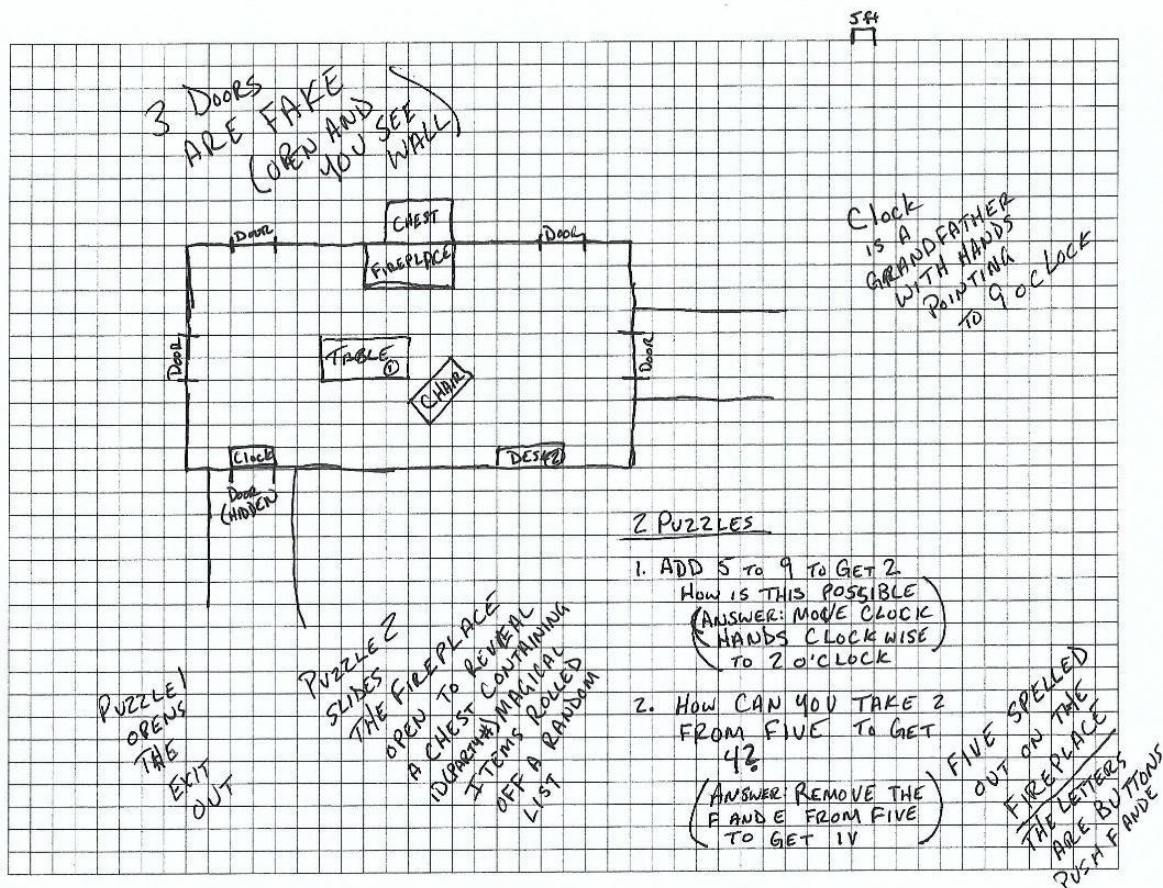 5 ft
3 DOORS
ARE FAKE
(OPEN AND
YOU SEE
WALL)
Clock
IS A
GRANDFATHER
WITH HANDS
POINTING
TO 9 OCLOCK
CHEST
DOOR
FIREPLACE
DOOR
DOOR
TABLE
1
CHAIR
DOOR
Clock
DESK 2
DOOR
(HIDDEN
2 PUZZLES
1. ADD 5 TO 9 TO GET 2
HOW IS THIS POSSIBLE
(ANSWER: MOVE CLOCK
HANDS CLOCKWISE
TO 2 O'CLOCK)
2. HOW CAN YOU TAKE 2
FROM FIVE TO GET
4?
(ANSWER: REMOVE THE
F AND E FROM FIVE
TO GET IV)
FIVE SPELLED
OUT ON THE
FIREPLACE
THE LETTERS
ARE BUTTONS
PUSH F AND E
PUZZLE 1
OPENS
THE
EXIT
OUT
PUZZLE 2
SLIDES
THE FIREPLACE
OPEN TO REVEAL
A CHEST CONTAINING
1D(PARTY#) MAGICAL
ITEMS ROLLED
OFF A RANDOM
LIST